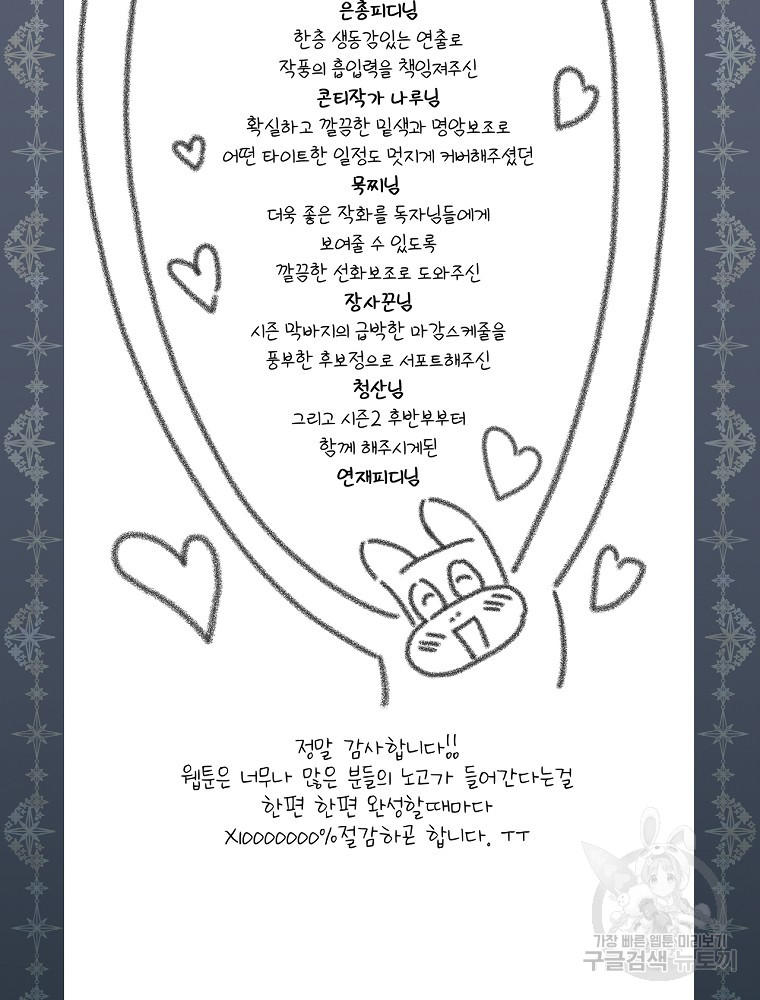 은총피디님
한층 생동감있는 연출로
작품의 흡입력을 책임져주신
콘티작가 나루님
확실하고 깔끔한 밑색과 명암보조로
어떤 타이트한 일정도 멋지게 커버해주셨던
묵찌님
더욱 좋은 작화를 독자님들에게
보여줄 수 있도록
깔끔한 선화보조로 도와주신
장사꾼님
시즌 막바지의 급박한 마감스케줄을
풍부한 후보정으로 서포트해주신
청산님
그리고 시즌2 후반부부터
함께 해주시게된
연재피디님
정말 감사합니다!!
웹툰은 너무나 많은 분들의 노고가 들어간다는걸
한편 한편 완성할때마다
X10000000%절감하곤 합니다. ㅜㅜ
가장 빠른 웹툰 미리보기
구글검색 뉴토끼